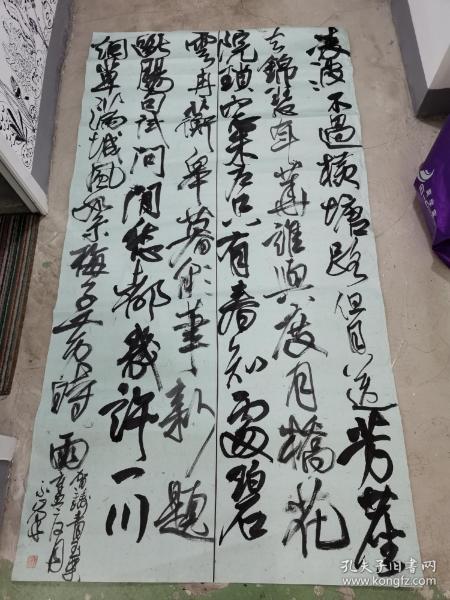 凌波不過橫塘路但目送芳塵
去錦瑟年華誰與度月橋花
院瑣窗朱戶只有春知處碧
雲冉冉蘅皋暮彩筆新題
斷腸句試問閒愁都幾許一川
烟草滿城風絮梅子黃時雨
賀鑄青玉案
孔夫子旧书网
www.kongfz.com